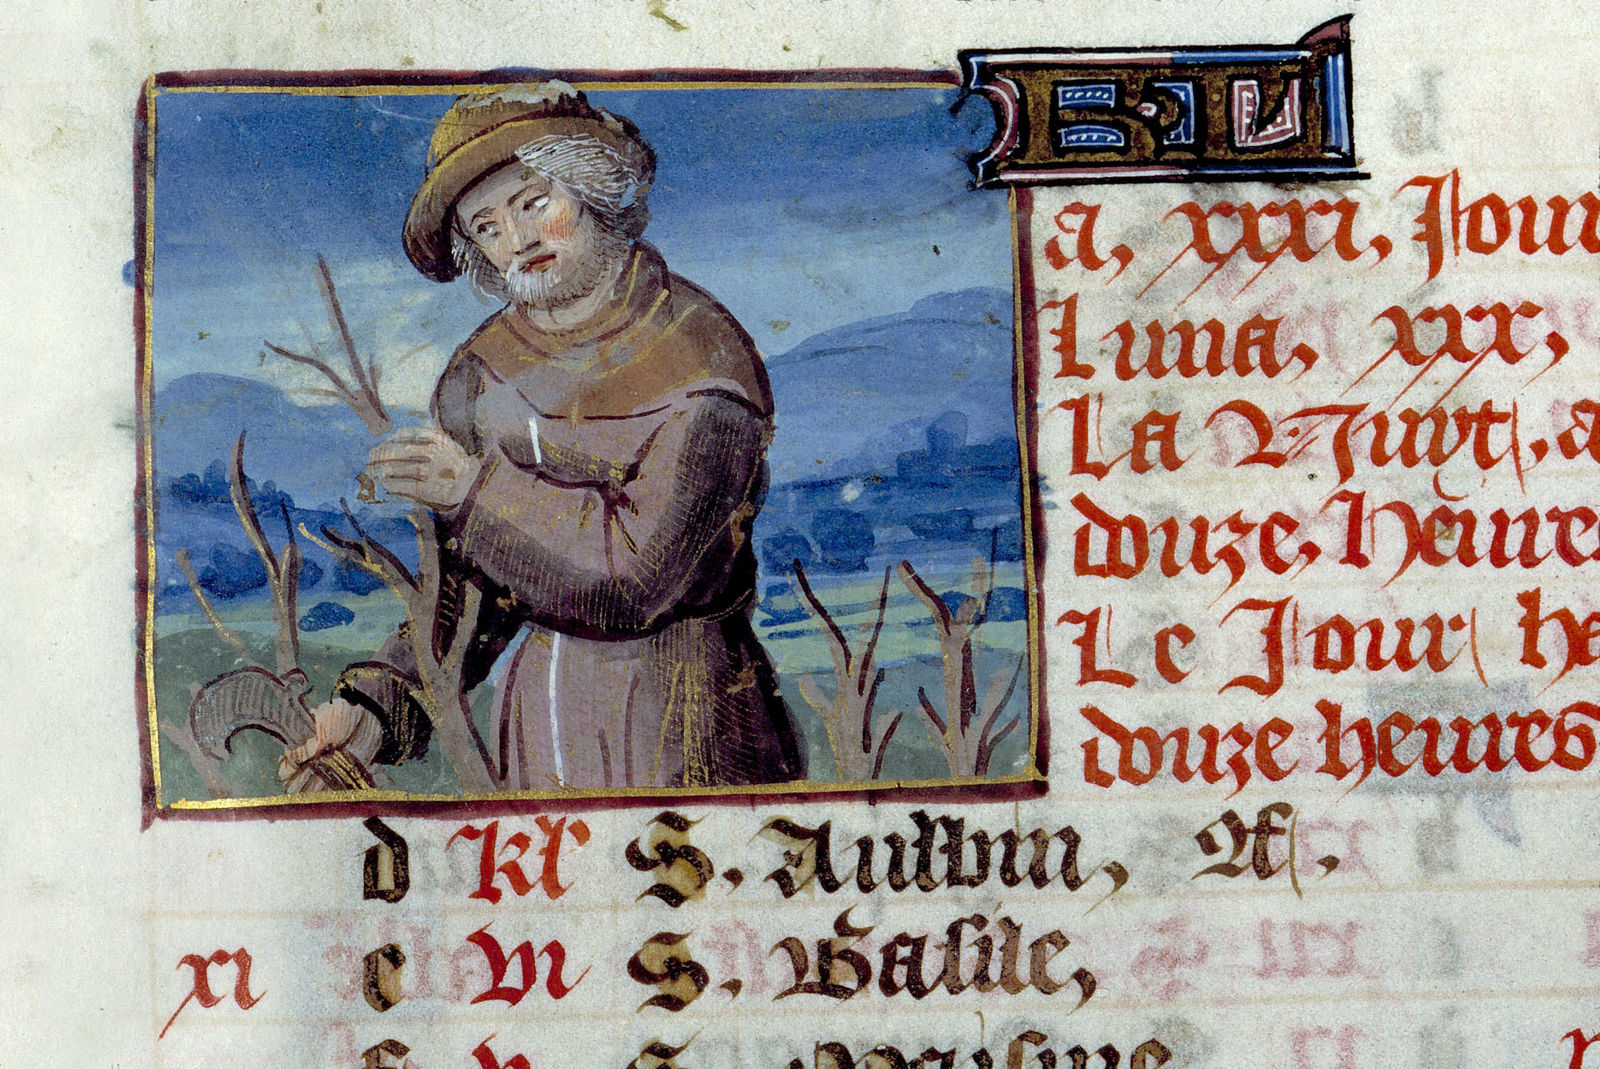 a, xxxi, Jour
Luna, xxx,
La Nuyt, a
douze, heures
Le Jour ha
douze heures
d Kl' S. Aulbin,
xi e vi S. Basile,
f v S.